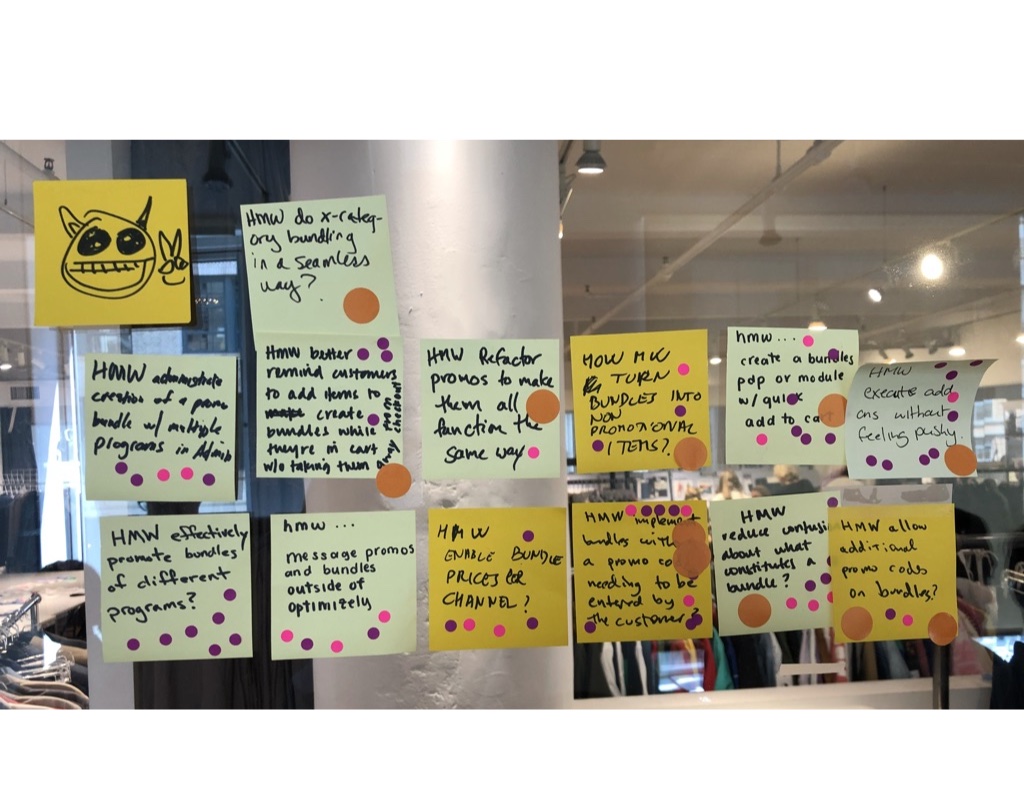 HMW do x-categ-
ory bundling
in a seamless
way?
HMW administrate
creation of a promo
bundle w/ multiple
programs in Admin
HMW better
remind customers
to add items to
create
bundles while
they're in cart
w/o taking them
away from
checkout
HMW Refactor
promos to make
them all
function the
same way
HOW MW
TURN
BUNDLES INTO
NON
PROMOTIONAL
ITEMS?
hmw...
create a bundles
pdp or module
w/ quick
add to cart
HMW
execute add
ons without
feeling pushy.
HMW effectively
promote bundles
of different
programs?
hmw...
message promos
and bundles
outside of
optimizely
HMW
ENABLE BUNDLE
PRICES PER
CHANNEL?
HMW implement
bundles with
a promo co
needing to be
entered by
the customer?
HMW
reduce confusi
about what
constitutes a
bundle?
HMW allow
additional
promo codes
on bundles?